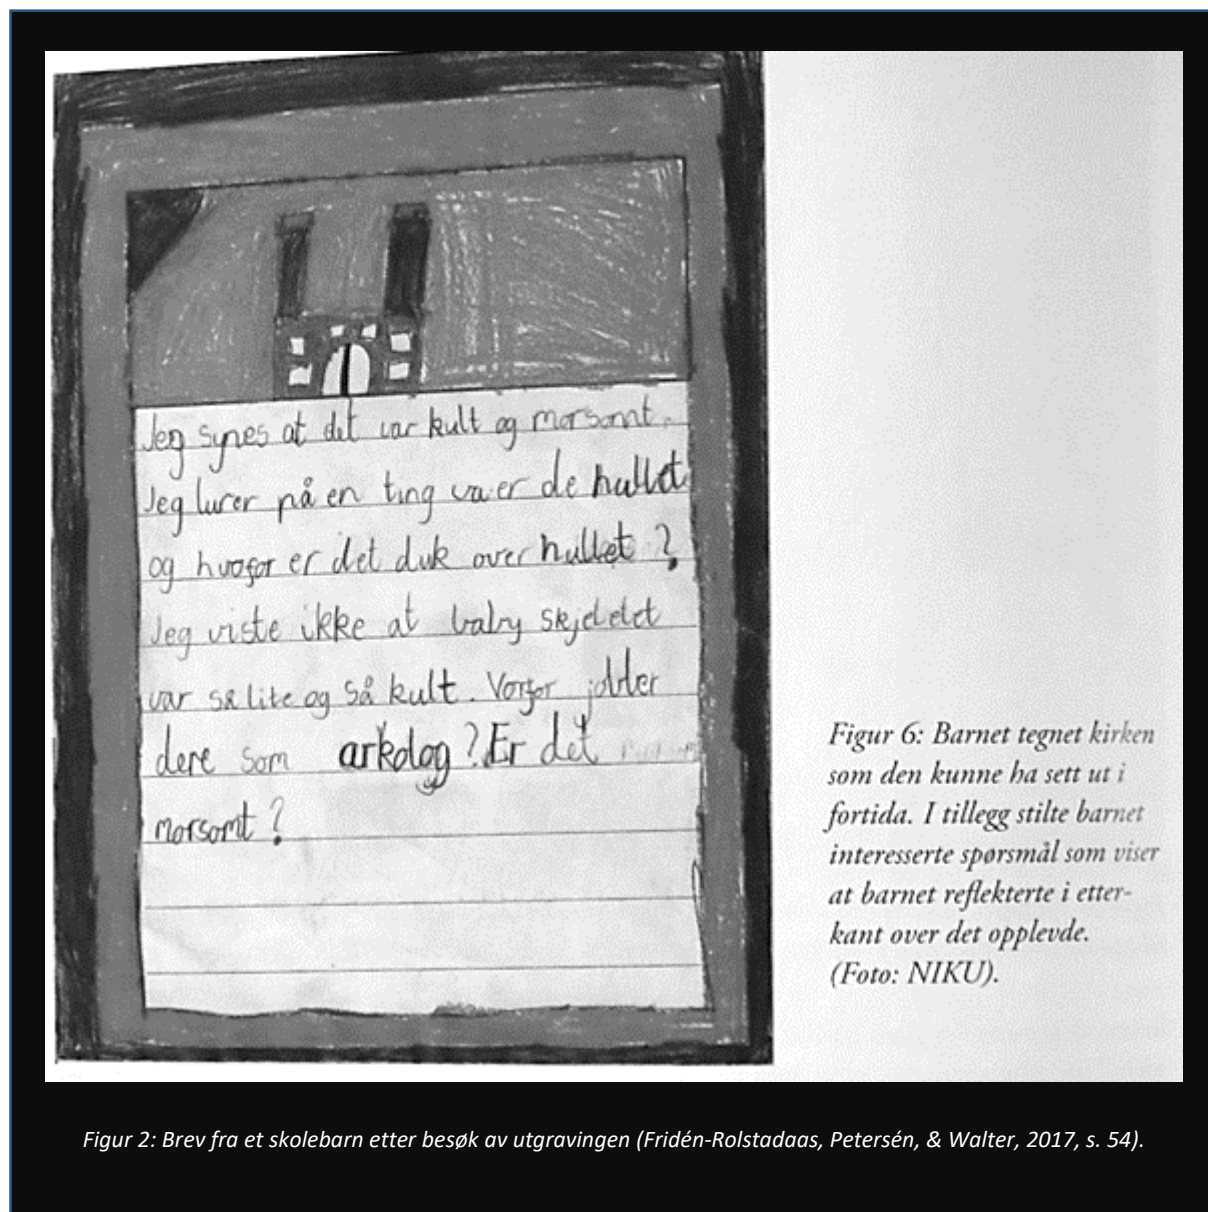 Jeg synes at det var kult og morsomt.
Jeg lurer på en ting va er de hullet
og hvofor er det duk over hullet ?
Jeg viste ikke at baby skjeletet
var så lite og så kult. Vorfor jobber
dere som arkolog ? Er det
morsomt ?
Figur 6: Barnet tegnet kirken
som den kunne ha sett ut i
fortida. I tillegg stilte barnet
interesserte spørsmål som viser
at barnet reflekterte i etter-
kant over det opplevde.
(Foto: NIKU).
Figur 2: Brev fra et skolebarn etter besøk av utgravingen (Fridén-Rolstadaas, Petersén, & Walter, 2017, s. 54).